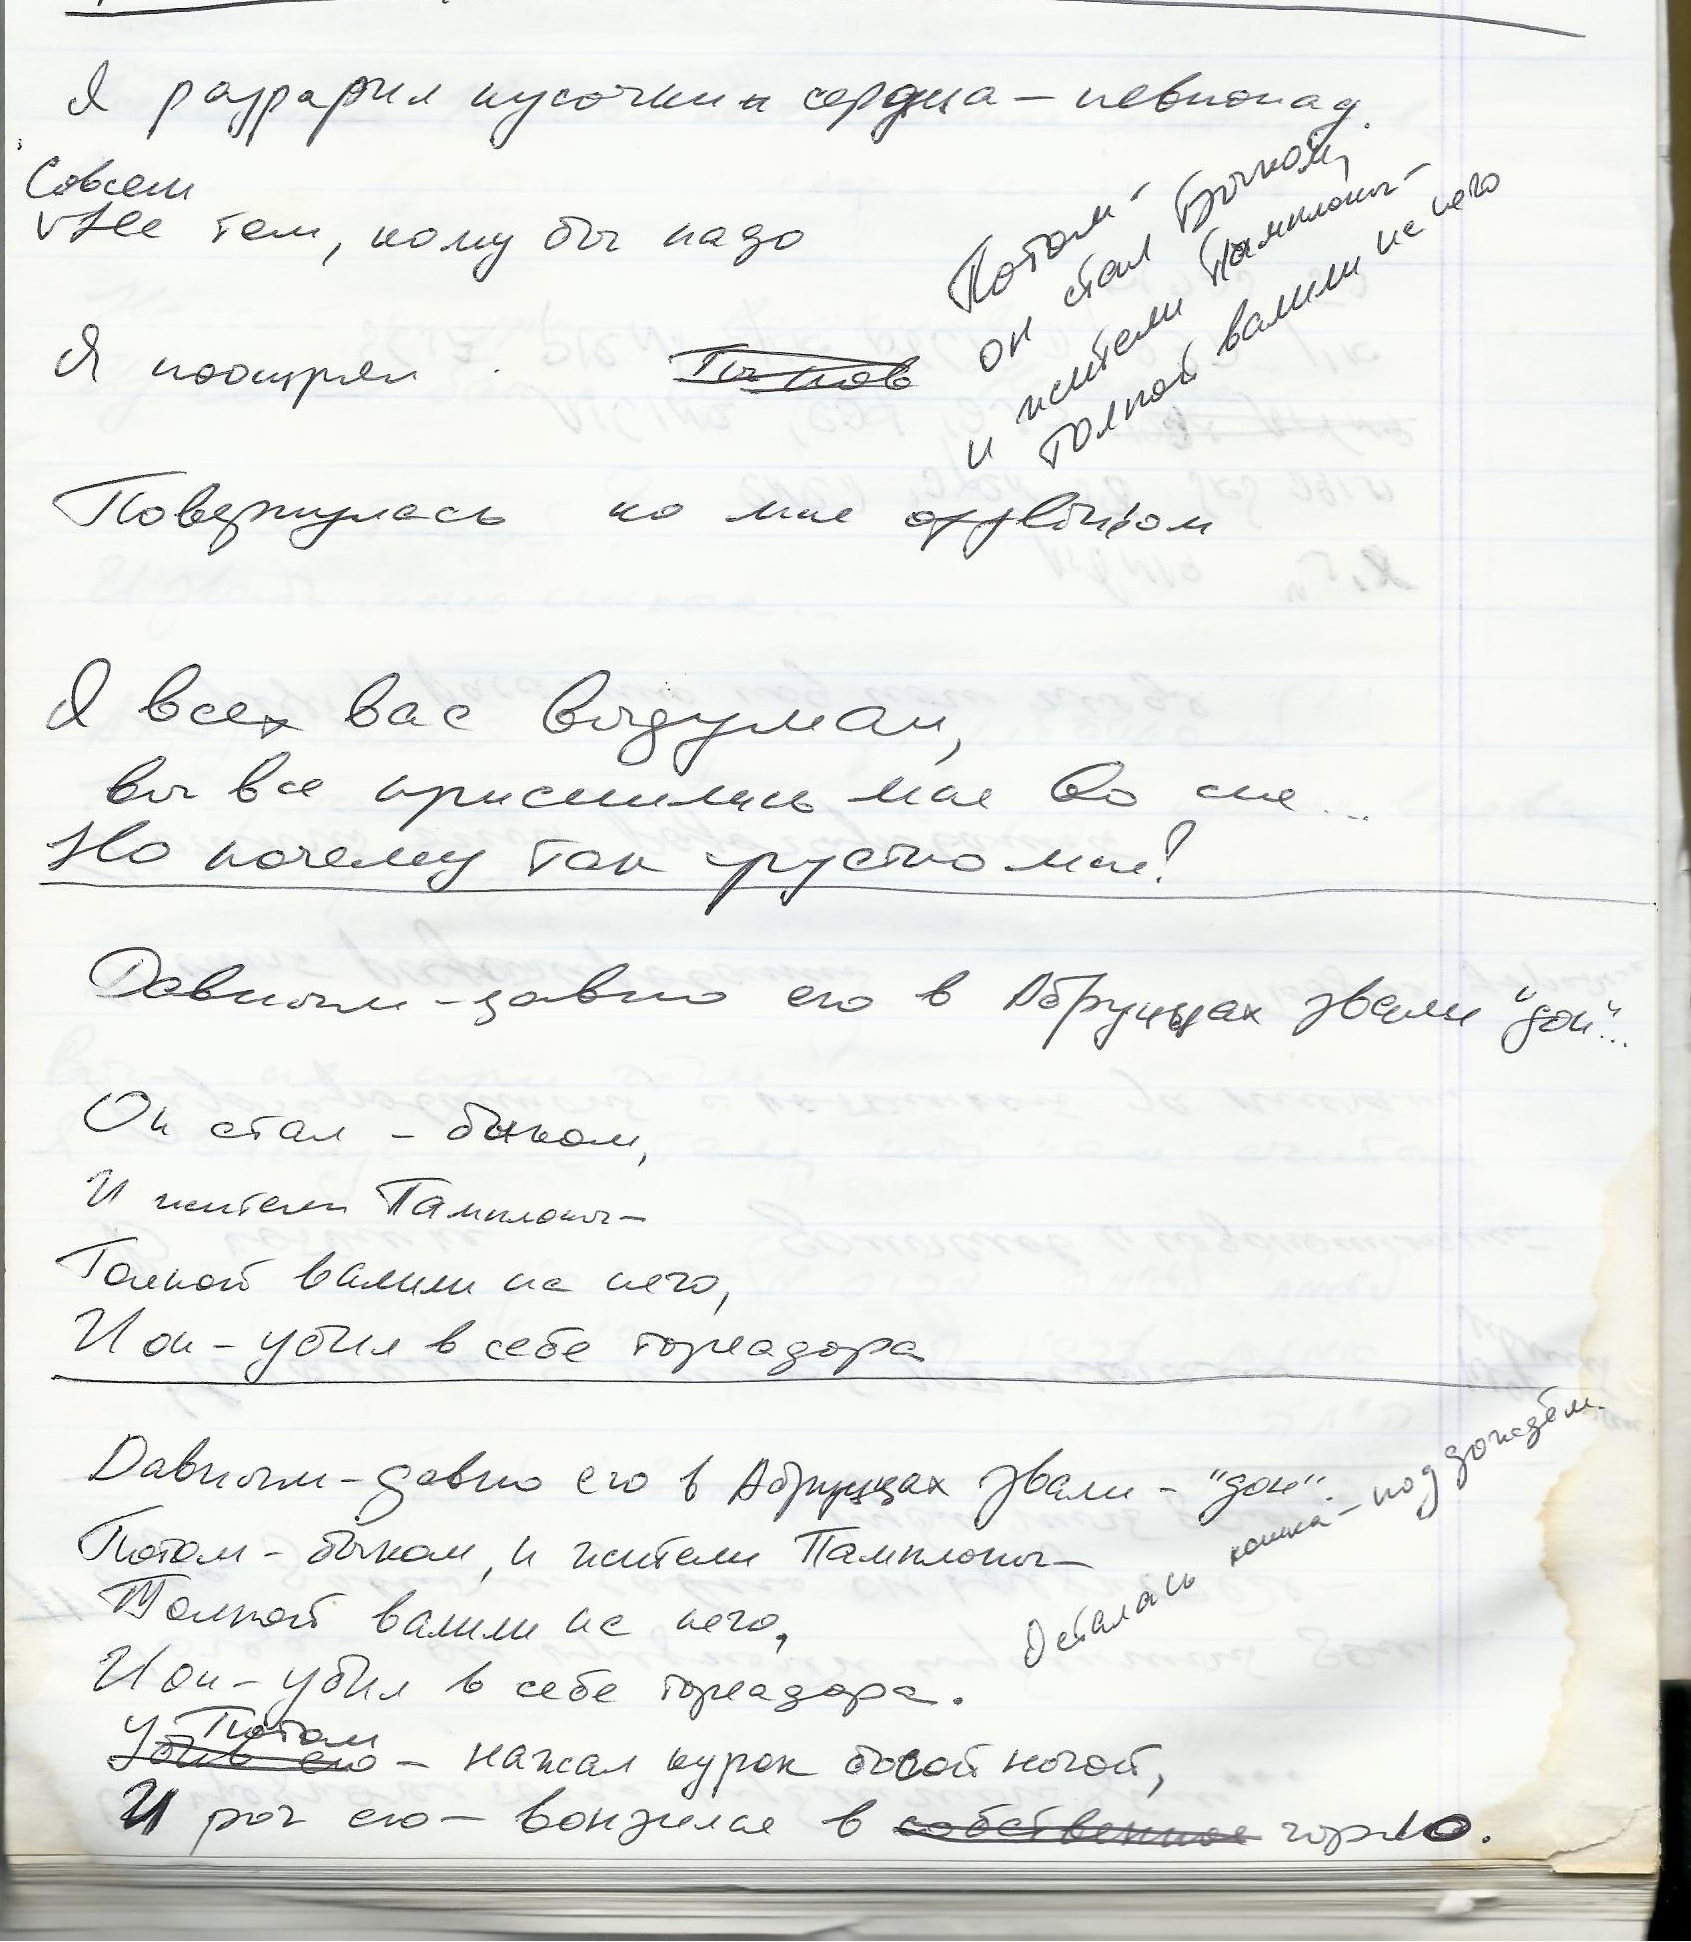 Я раздарил кусочки сердца – невпопад.
Совсем
Не тем, кому бы надо
Потом –
он стал Быком,
и жители Памплоны –
толпой валили на него
Я поощрял
Повернулась ко мне offline'ом
Я всех вас выдумал,
вы все приснились мне во сне...
Но почему так грустно мне?
Давным-давно его в Абруццах звали "дон"...
Он стал – быком,
И жители Памплоны –
Толпой валили на него,
И он – убил в себе тореадора
Давным-давно его в Абруццах звали – "дон".
Потом – быком, и жители Памплоны –
Толпой валили на него,
И он – убил в себе тореадора.
Осталась кошка – под дождём.
Потом
Убив его – нажал курок босой ногой,
И рог его – вонзился в собственное горло.